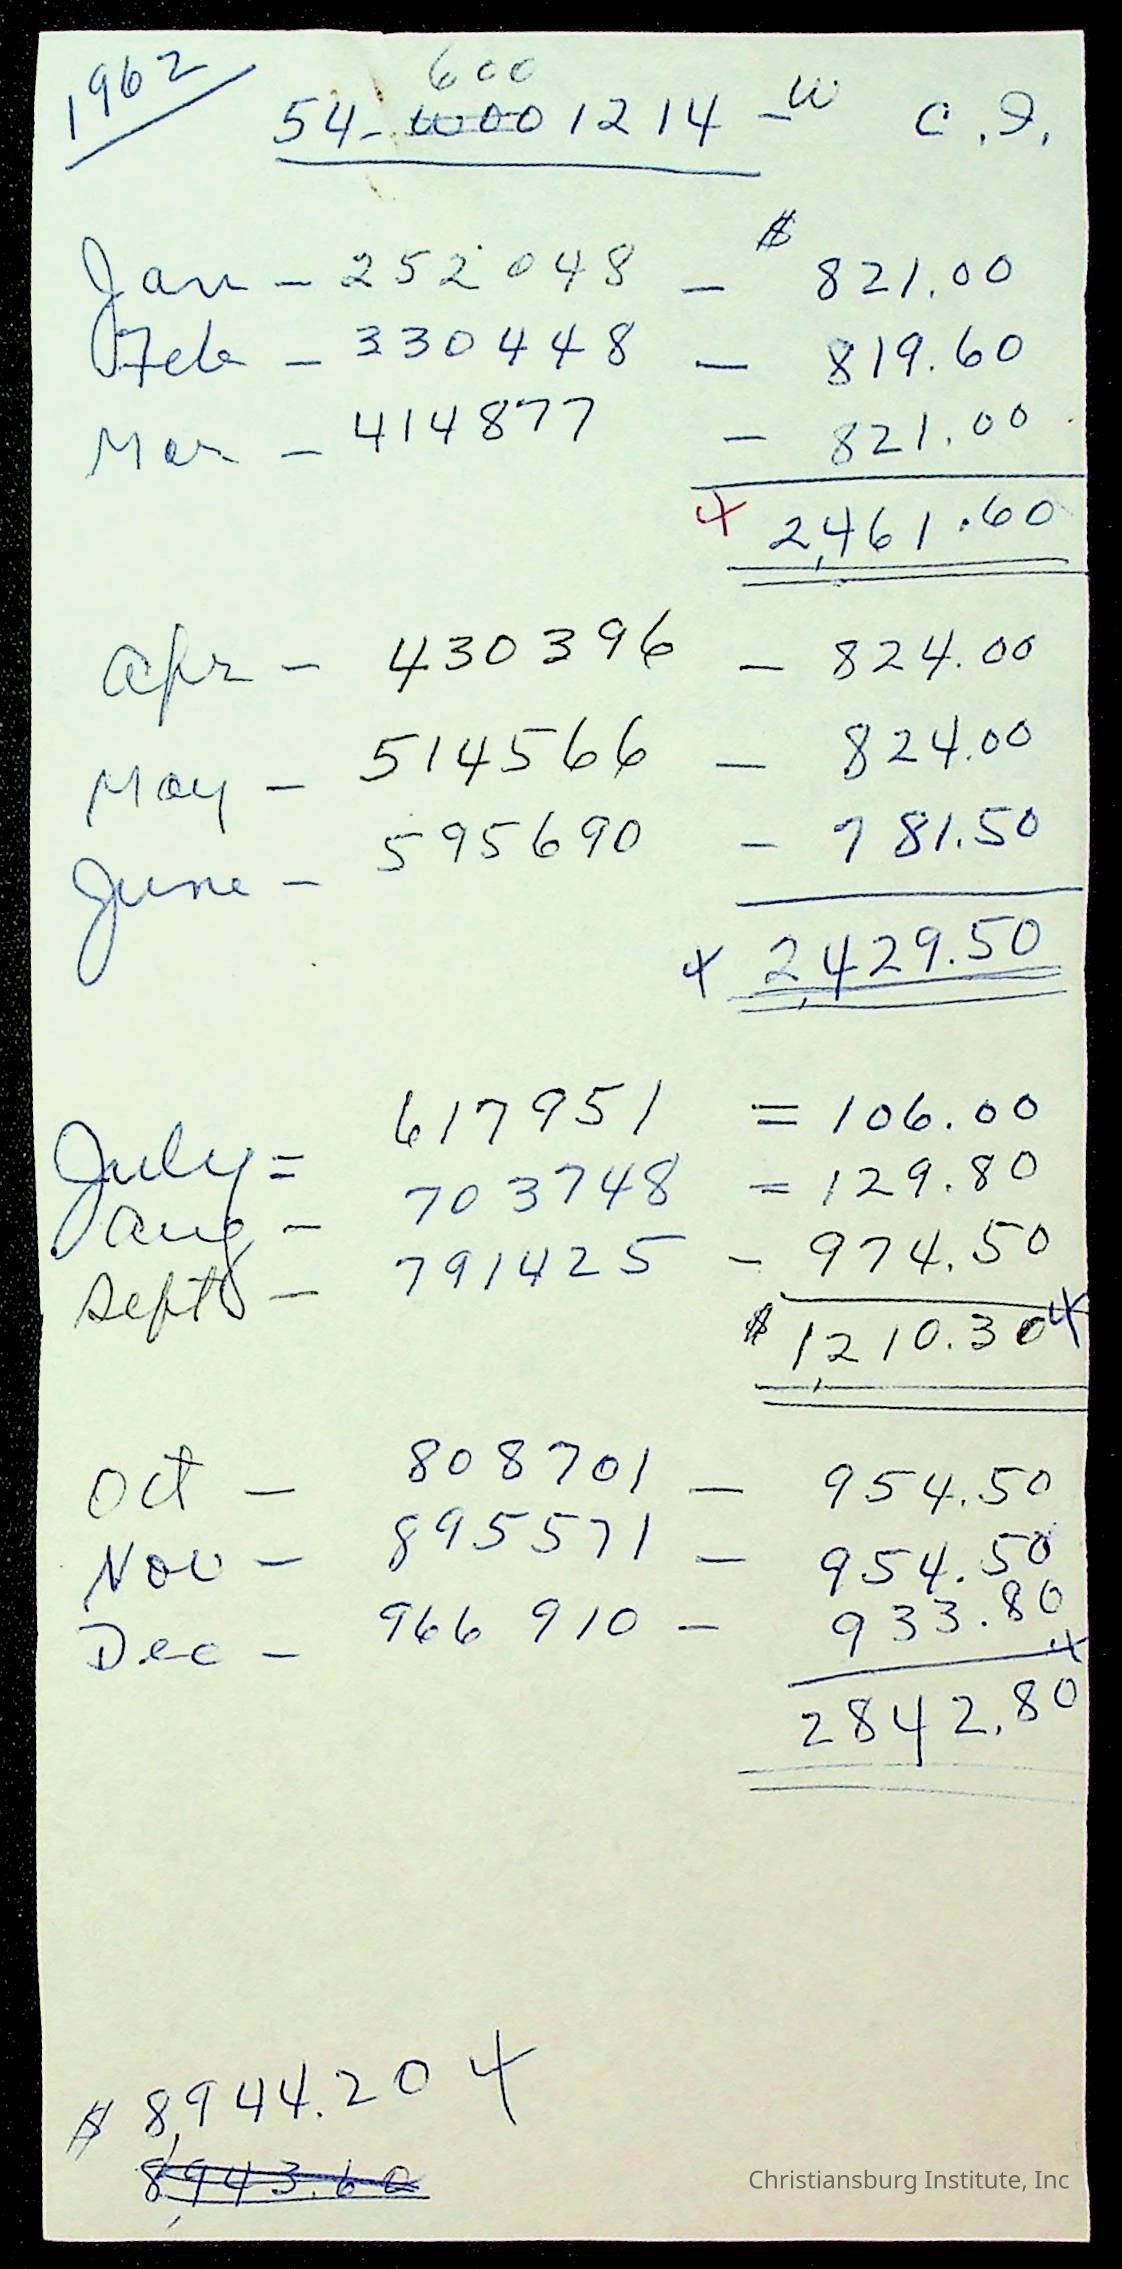 1962
600
54-0001214-W C.I.
$
Jan - 252048 - 821.00
Feb - 330448 - 819.60
Mar - 414877 - 821.00
x 2,461.60
Apr - 430396 - 824.00
May - 514566 - 824.00
June - 595690 - 781.50
x 2,429.50
July = 617951 = 106.00
Aug - 703748 = 129.80
Sept - 791425 - 974.50
$ 1,210.30 x
Oct - 808701 - 954.50
Nov - 895571 - 954.50
Dec - 966910 - 933.80
x
2842.80
$ 8,944.20 x
8,943.60
Christiansburg Institute, Inc